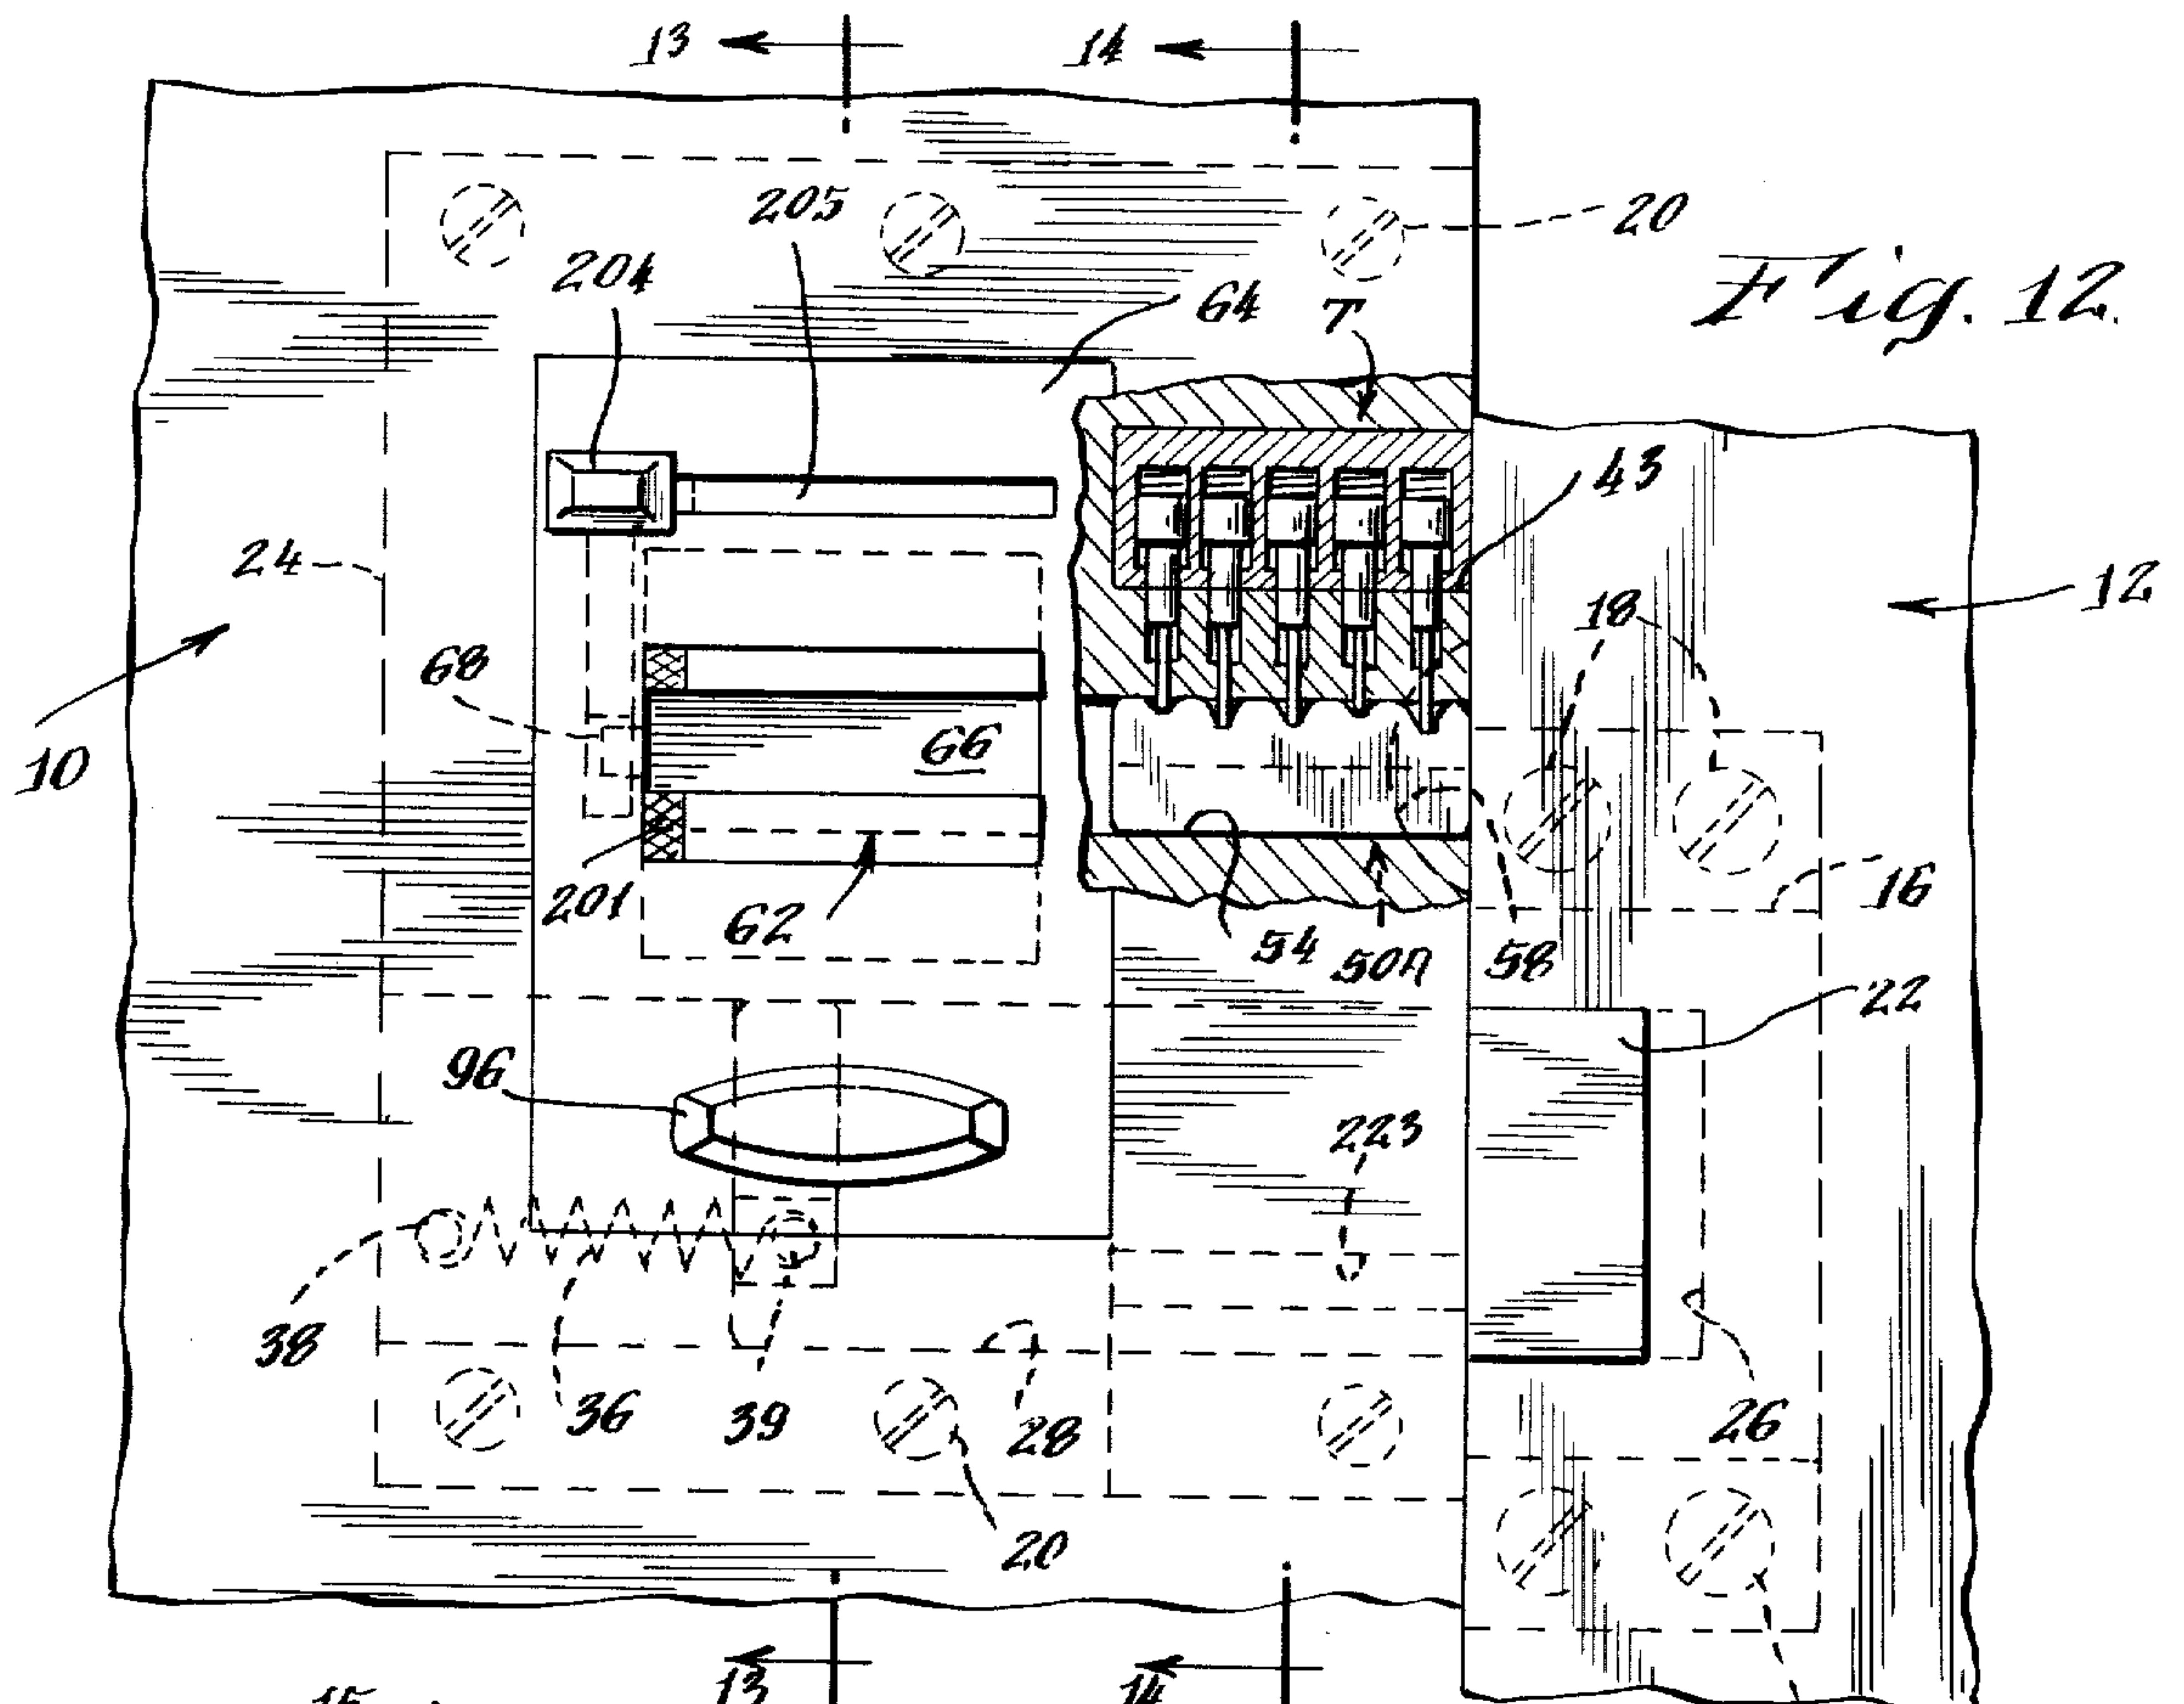 13
14
205
20
204
64
T
Fig. 12.
43
24
18
12
68
66
10
201
62
54
58
16
22
96
223
38
36
39
28
26
20
13
14
15